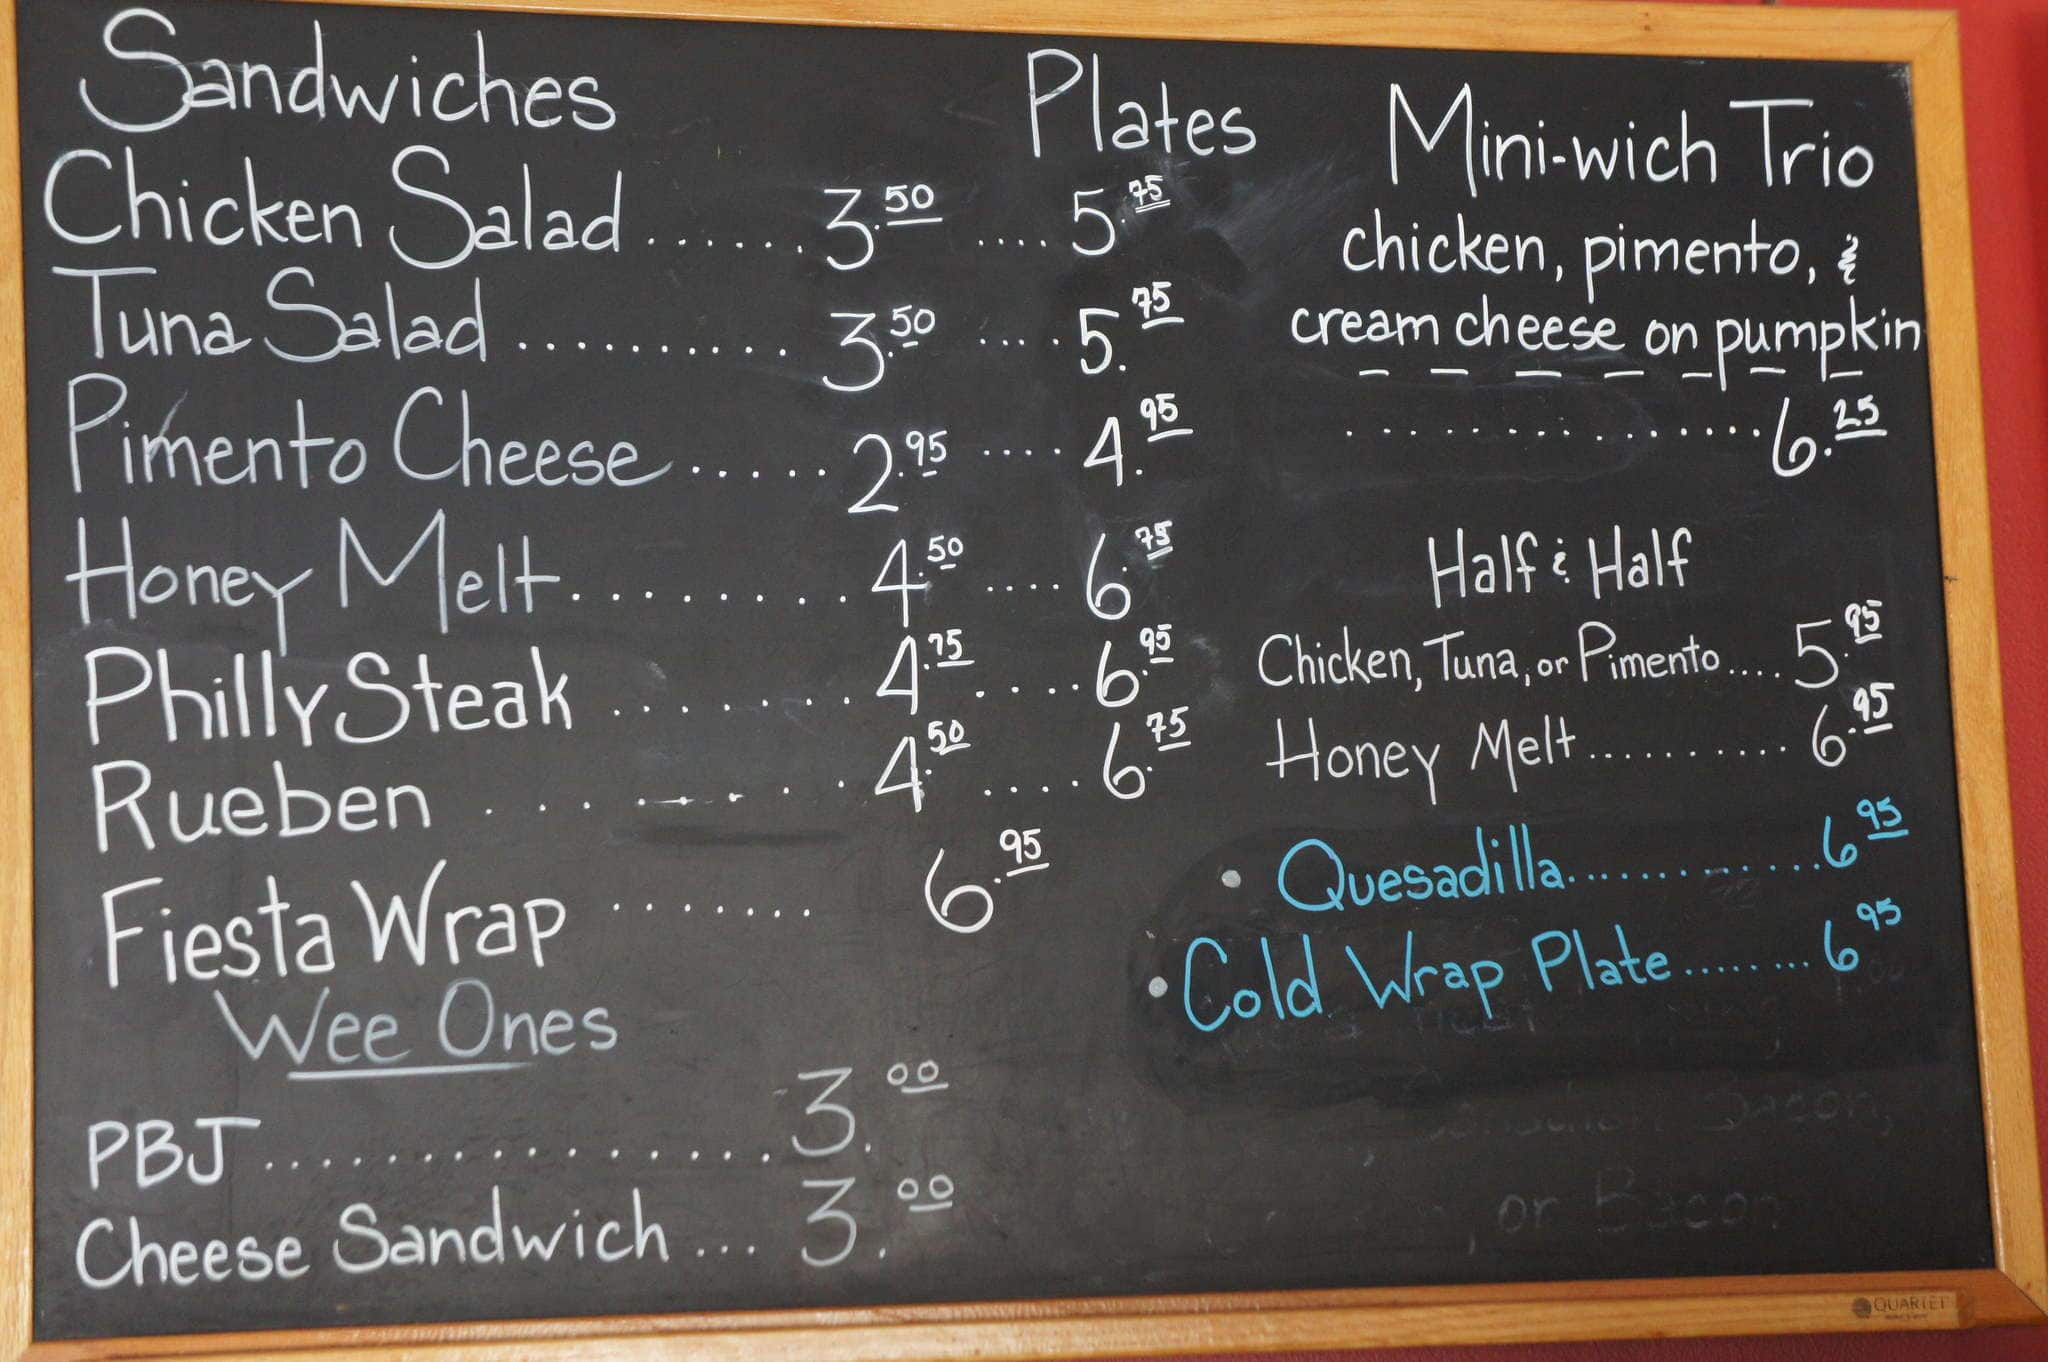 Sandwiches Plates
Chicken Salad ....... 3.50 .... 5.75
Tuna Salad .......... 3.50 .... 5.75
Pimento Cheese ...... 2.95 .... 4.95
Honey Melt .......... 4.50 .... 6.75
Philly Steak ........ 4.75 .... 6.95
Rueben ......... 4.50 .... 6.75
Fiesta Wrap ........ 6.95
Wee Ones
PBJ .................. 3.00
Cheese Sandwich ... 3.00
Mini-wich Trio
chicken, pimento, &
cream cheese on pumpkin
............... 6.25
Half & Half
Chicken, Tuna, or Pimento .... 5.95
Honey Melt ........... 6.95
• Quesadilla ............ 6 95
• Cold Wrap Plate ........ 6 95
Bacon,
, or Bacon
QUARTET